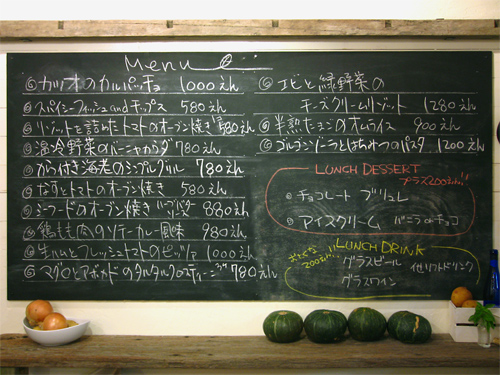 Menu
◎ カツオのカルパッチョ 1000えん
◎ スパイシーフィッシュandチップス 580えん
◎ リゾットを詰めたトマトのオーブン焼き 580えん
◎ 温冷野菜のバーニャカウダ 780えん
◎ から付き海老のシンプルグリル 780えん
◎ なすとトマトのオーブン焼き 580えん
◎ シーフードのオーブン焼き ハーブバターソース 880えん
◎ 鶏もも肉のソテーカレー風味 980えん
◎ 生ハムとフレッシュトマトのピッツァ 1000えん
◎ マグロとアボカドのタルタルクロスティーニ 780えん
◎ エビと緑野菜の
チーズクリームリゾット 1280えん
◎ 半熟たまごのオムライス 900えん
◎ ゴルゴンゾーラとはちみつのパスタ 1200えん
LUNCH DESSERT
プラス200えん!!
◎ チョコレート ブリュレ
◎ アイスクリーム バニラorチョコ
LUNCH DRINK
プラス200えん!!
グラスビール
グラスワイン